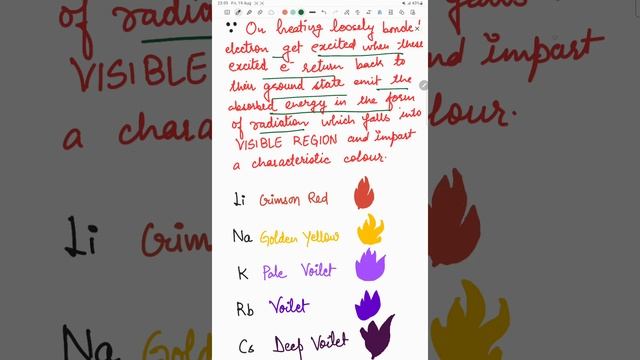 ∵ On heating loosely bonded
electron get excited when these
excited e⁻ return back to
their ground state emit the
absorbed energy in the form
of radiation which falls into
VISIBLE REGION and impart
a characteristic colour.
Li Crimson Red
Na Golden Yellow
K Pale Voilet
Rb Voilet
Cs Deep Voilet